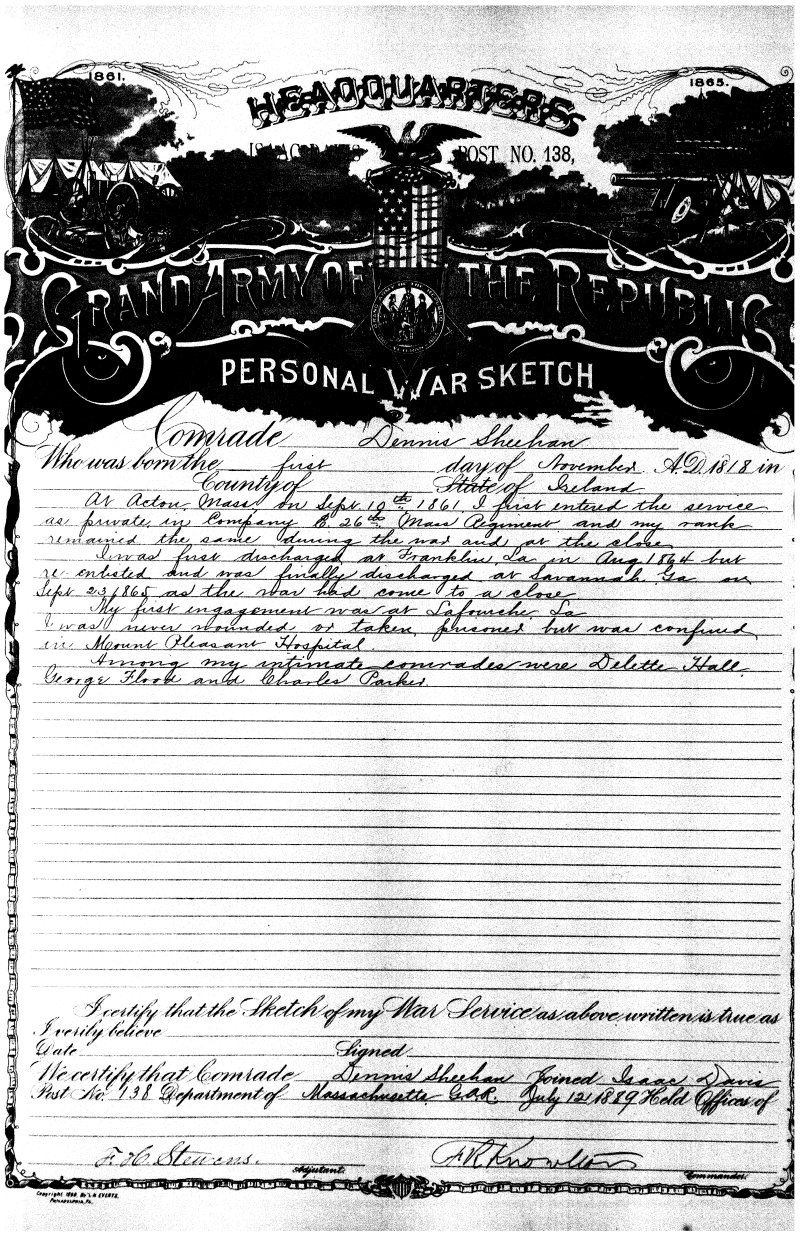 1861.
1865.
HEADQUARTERS
ISAAC DAVIS POST NO. 138,
GRAND ARMY OF THE REPUBLIC
PERSONAL WAR SKETCH
Comrade Dennis Sheehan
Who was born the first day of November A.D. 1818 in
County of State of Ireland
At Acton, Mass, on Sept. 19th 1861 I first entered the service
as private, in Company B. 26th Mass Regiment and my rank
remained the same during the war and at the close
I was first discharged at Franklin, La in Aug 1864 but
re-enlisted and was finally discharged at Savannah Ga on
Sept 23, 1865, as the war had come to a close
My first engagement was at Lafourche, La
I was never wounded or taken prisoner but was confined
in Mount Pleasant Hospital.
Among my intimate comrades were Delette Hall
George Flood and Charles Parker.
I certify that the Sketch of my War Service as above written is true as
I verily believe
Date Signed
We certify that Comrade Dennis Sheehan Joined Isaac Davis
Post No. 138 Department of Massachusetts G.A.R. July 12 1889 Held Offices of
F. H. Stevens. Adjutant.
F R Knowlton Commander.
Copyright 1890. By L.H. EVERTS.
PHILADELPHIA, PA.